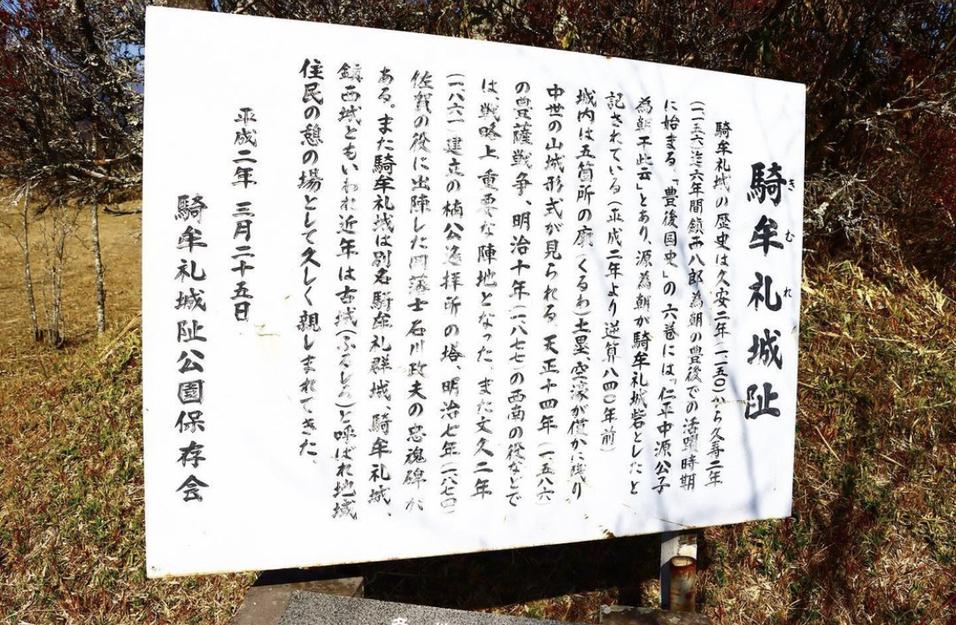 騎牟礼城址
きむれ
騎牟礼城の歴史は久安二年(一一五〇)から久寿二年
(一一五六迄六年間鎮西八郎為朝の豊後での活躍時期
に始まる、「豊後国史」の六巻には「仁平中源公子
為朝干此云」とあり、源為朝が騎牟礼城砦としたと
記されている(平成二年より逆算八四〇年前)
城内は五箇所の廓(くるわ)土塁、空濠が僅かに残り
中世の山城形式が見られる、天正十四年(一五八六)
の豊薩戦争、明治十年(一八七七)の西南の役などで
は戦略上、重要な陣地となった、また文久二年
(一八六一建立の楠公遙拝所の塔、明治七年(一八七〇)
佐賀の役に出陣した岡藩士石川政夫の忠魂碑が
ある。また騎牟礼城は別名騎牟礼群城、騎牟礼城、
鎮西城ともいわれ近年は古城(ふるしろ)と呼ばれ地域
住民の憩の場として久しく親しまれてきた、
平成二年 三月二十五日
騎牟礼城址公園保存会